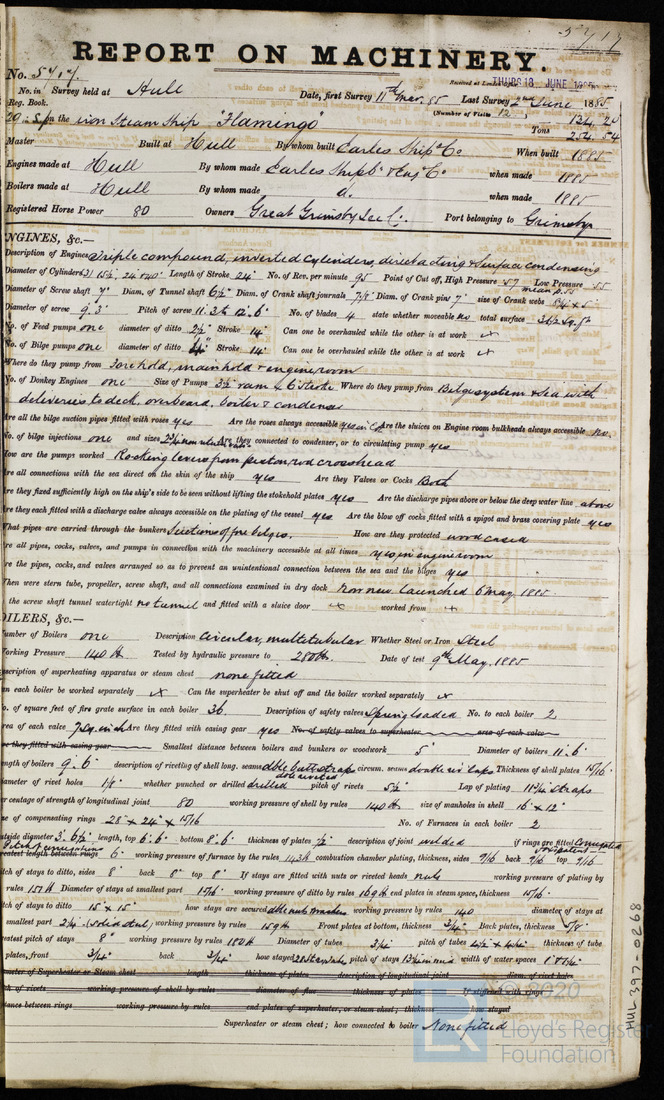 5717
REPORT ON MACHINERY.
No. 5717. Received at London Office THURS 18 JUNE
No. in Survey held at Hull Date, first Survey 11th Mar. 85 Last Survey 2nd June 1885
Reg. Book. (Number of Visits 12)
on the iron Steam Ship "Flamingo" Tons
Master Built at Hull By whom built Earles Shipb Co When built 1885
Engines made at Hull By whom made Earles Shipb & Eng Co when made 1885
Boilers made at Hull By whom made do. when made 1885
Registered Horse Power 80 Owners Great Grimsby Ice Co. Port belonging to Grimsby
NGINES, &c.—
Description of Engines Triple compound, inverted cylinders, direct acting & Surface condensing
Diameter of Cylinders 15½, 24 & 40" Length of Stroke 24" No. of Rev. per minute 95 Point of Cut off, High Pressure .57 Low Pressure .55
Diameter of Screw shaft 7" Diam. of Tunnel shaft 6½" Diam. of Crank shaft journals Diam. of Crank pins 7" size of Crank webs
Diameter of screw 9.3" Pitch of screw 11.3 to 12.6" No. of blades 4 state whether moveable no total surface
No. of Feed pumps one diameter of ditto 2½" Stroke 14" Can one be overhauled while the other is at work
No. of Bilge pumps one diameter of ditto Stroke 14" Can one be overhauled while the other is at work
Where do they pump from Forehold, main hold & engine room
No. of Donkey Engines one Size of Pumps 3½ ram & 6 stroke Where do they pump from Bilge system & Sea with
deliveries to deck, overboard, boiler & condenser
Are all the bilge suction pipes fitted with roses yes Are the roses always accessible yes Are the sluices on Engine room bulkheads always accessible no.
No. of bilge injections one and sizes Are they connected to condenser, or to circulating pump yes
How are the pumps worked Rocking levers from piston rod crosshead
re all connections with the sea direct on the skin of the ship yes Are they Valves or Cocks Both
re they fixed sufficiently high on the ship's side to be seen without lifting the stokehold plates yes Are the discharge pipes above or below the deep water line above
re they each fitted with a discharge valve always accessible on the plating of the vessel yes Are the blow off cocks fitted with a spigot and brass covering plate yes
What pipes are carried through the bunkers Suctions of fore bilges. How are they protected wood cased
re all pipes, cocks, valves, and pumps in connection with the machinery accessible at all times yes in engine room
re the pipes, cocks, and valves arranged so as to prevent an unintentional connection between the sea and the bilges yes
When were stern tube, propeller, screw shaft, and all connections examined in dry dock Now new. launched 6 May 1885.
the screw shaft tunnel watertight no tunnel and fitted with a sluice door worked from
OILERS, &c.—
umber of Boilers one Description Circular, multitubular Whether Steel or Iron Steel
orking Pressure 140 lb Tested by hydraulic pressure to 280 lb. Date of test 9th May. 1885
escription of superheating apparatus or steam chest none fitted
an each boiler be worked separately Can the superheater be shut off and the boiler worked separately
o. of square feet of fire grate surface in each boiler 36. Description of safety valves Spring loaded No. to each boiler 2
rea of each valve 7 sq. inch Are they fitted with easing gear yes No. of safety valves to superheater area of each valve
re they fitted with easing gear Smallest distance between boilers and bunkers or woodwork 5" Diameter of boilers 11.6"
ength of boilers 9.6" description of riveting of shell long. seams dble butt straps circum. seams double riv laps Thickness of shell plates 15/16"
dble riveted
iameter of rivet holes whether punched or drilled drilled pitch of rivets 5½" Lap of plating straps
er centage of strength of longitudinal joint 80 working pressure of shell by rules 140 lb size of manholes in shell 16" x 12"
ze of compensating rings 28" x 24" x 15/16 No. of Furnaces in each boiler 2
utside diameter 3'.6½" length, top 6'.6" bottom 8'.6" thickness of plates ½" description of joint welded if rings are fitted corrugated
reatest length between rings 6" working pressure of furnace by the rules 143 lb combustion chamber plating, thickness, sides 9/16 back 9/16 top 9/16
tch of stays to ditto, sides 8" back 8" top 8" If stays are fitted with nuts or riveted heads nuts working pressure of plating by
rules 157 lb Diameter of stays at smallest part working pressure of ditto by rules 169 lb end plates in steam space, thickness 15/16"
itch of stays to ditto 15" x 15" how stays are secured dble nuts & washers working pressure by rules 140 diameter of stays at
smallest part 2¼" (solid steel) working pressure by rules 159 lb Front plates at bottom, thickness ¾" Back plates, thickness 5/8"
eatest pitch of stays 8" working pressure by rules 180 lb Diameter of tubes 3¼" pitch of tubes thickness of tube
plates, front ¾" back ¾" how stayed pitch of stays width of water spaces
meter of Superheater or Steam chest length thickness of plates description of longitudinal joint diam. of rivet holes
tch of rivets working pressure of shell by rules diameter of flue thickness of plates If stiffened with rings
stance between rings working pressure by rules end plates of superheater, or steam chest; thickness how stayed
Superheater or steam chest; how connected to boiler None fitted
HUL397-0268
© 2020
Lloyd's Register
Foundation